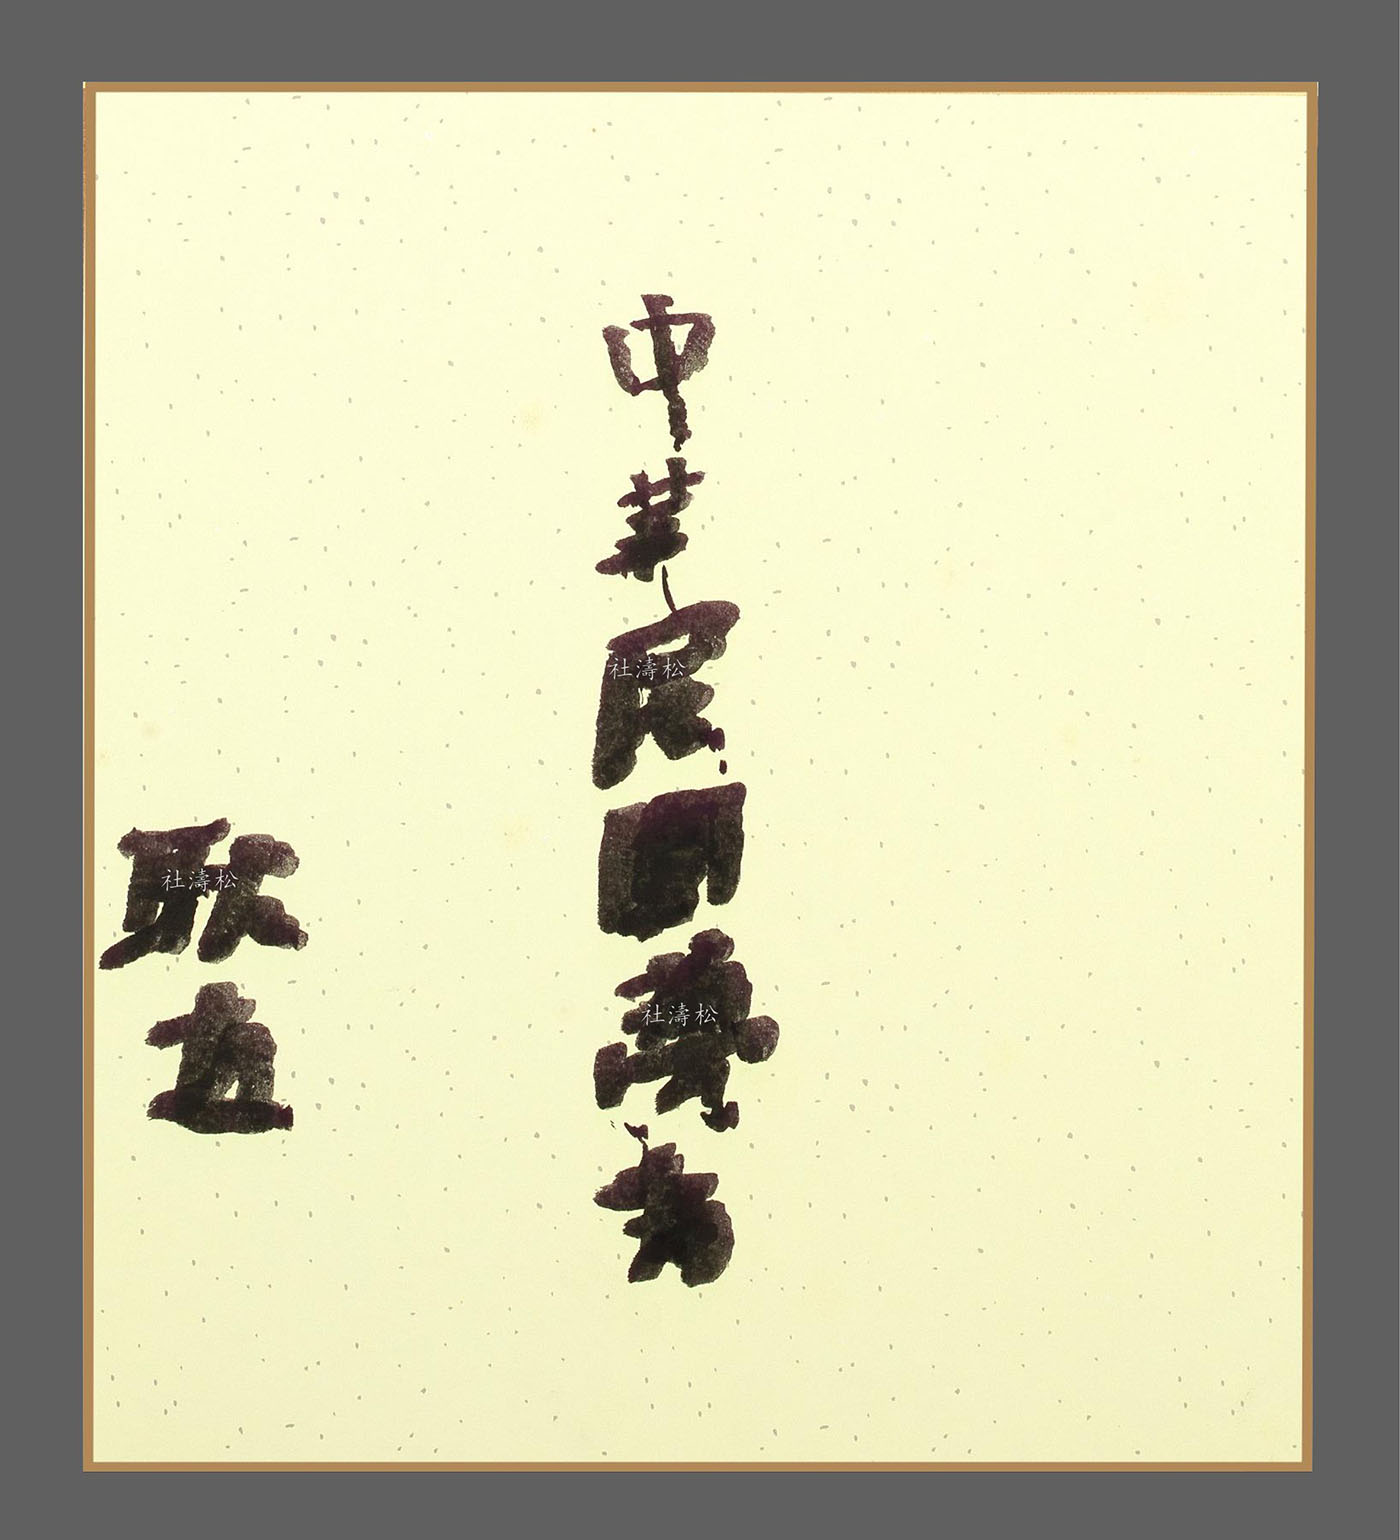 中華民國萬
耿直
社濤松
社濤松
社濤松